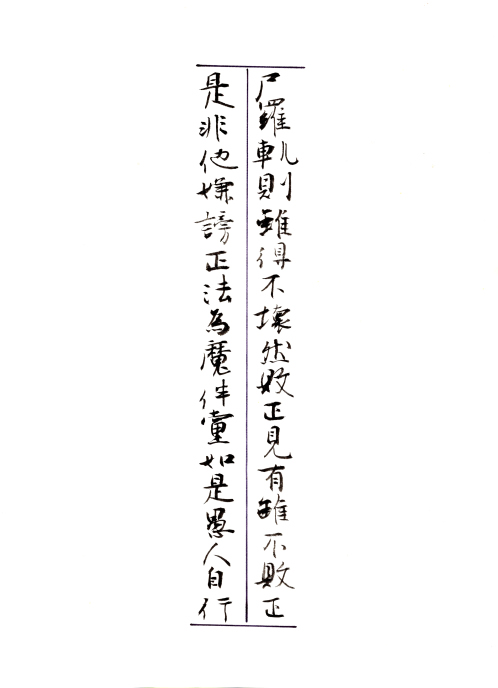 尸羅軌則雖得不壞然敗正見有雖不敗正
是非他嫌謗正法為魔伴黨如是愚人自行